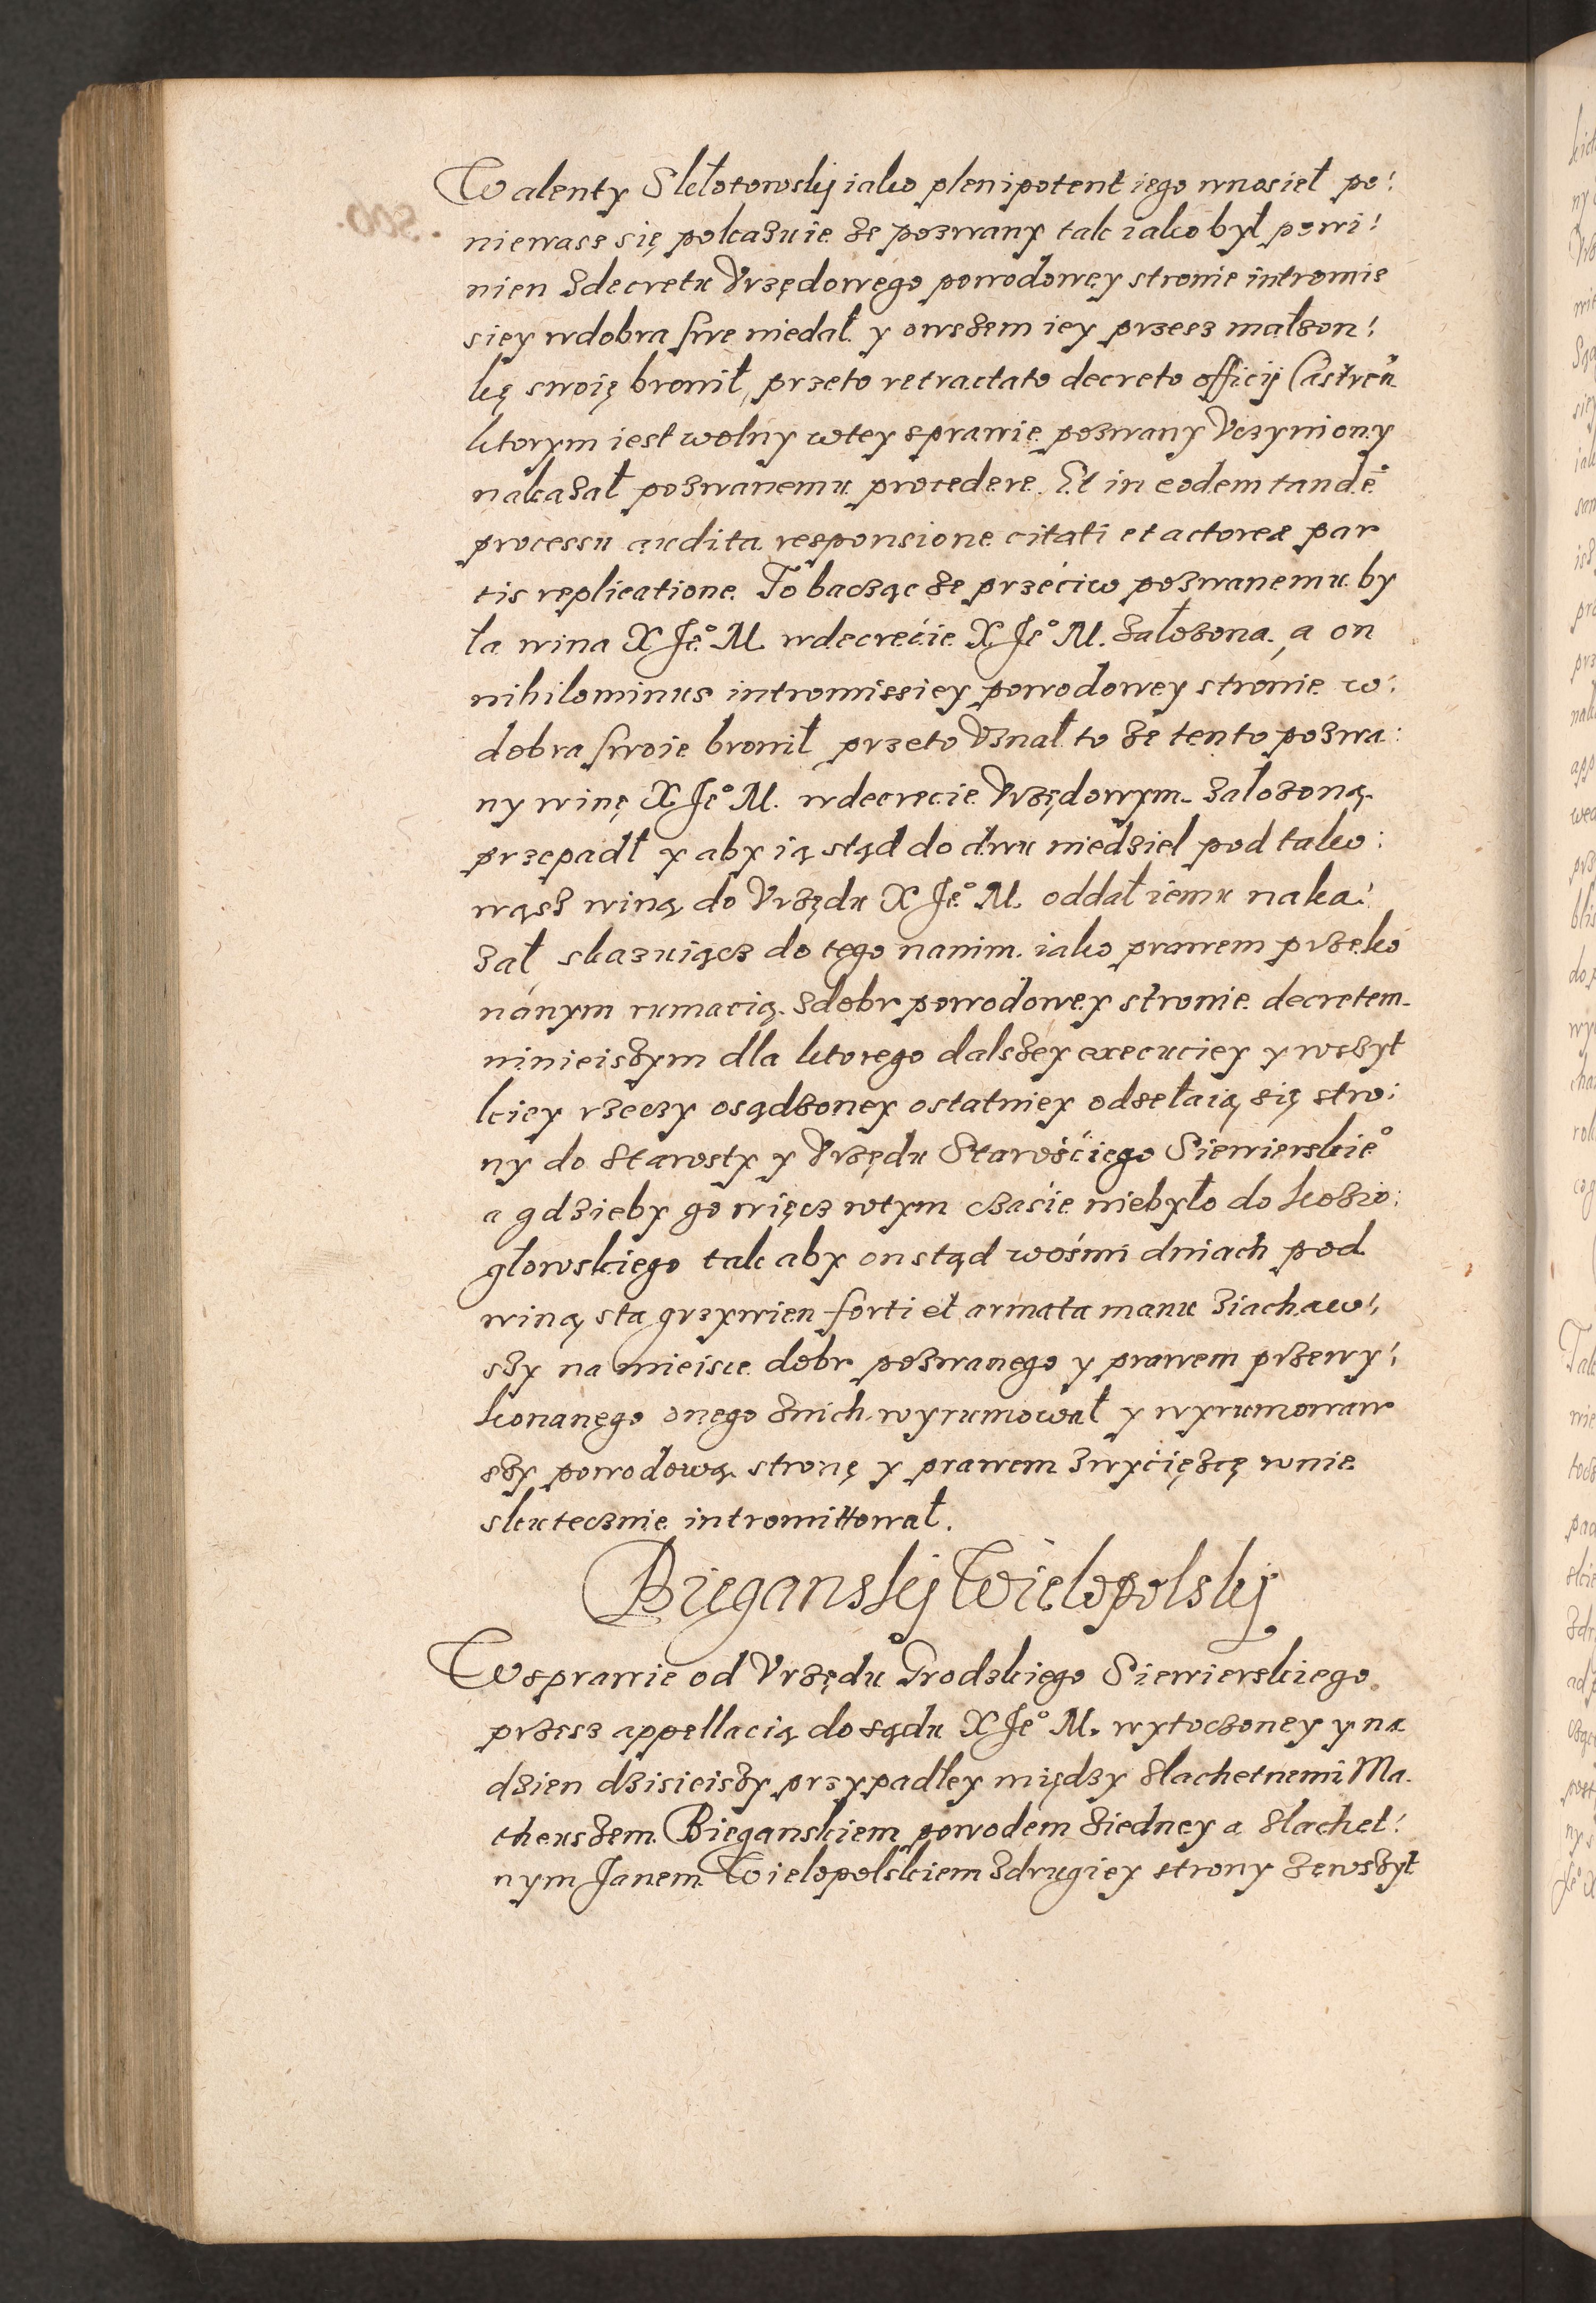 Walenty Skłotowskÿ iako plenipotent iego wnosieł po:
niewasz się pokazuie że pozwany tak iako był powi:
nien zdecretu Vrzędowego powodowey stronie intromis
siey wdobra swe niedał y owszem iey przesz małżon:
kę swoię bronił, przeto retractato decreto officÿ Castreñ
ktorym iest wolny wtey sprawie pozwany Vczyniony
nakazał pozwanemu procedere. Et in eodem tandē
processu audita responsione citati et actoreæ par
tis replicatione. To bacząc że przećiw pozwanemu by
ła wina X Je° M. wdecrećie X Je° M. założona, a on
nihilominus intromissiey powodowey stronie w:
dobra swoie bronił przeto Vznał to że tento pozwa:
ny winę X Je° M. wdecrecie Vrzędowym założoną
przepadł y aby ią stąd do dwu niedziel pod tako:
wąsz winą do Vrzędu X Je° M. oddał iemu naka:
zał skazuiącz do tego nanim iako prawem przeko
nánym rumacią zdobr powodowey stronie decretem
ninieiszym dla ktorego dalszey execuciey y wszyt
kiey rzeczy osądzoney ostatniey odsełaią się stro:
ny do Starosty y Vrzędu Starośćiego Siewierskie°
a gdzieby go więcz wtym czasie niebyło do Kozio:
głowskiego tak aby on stąd wośmi dniach pod
winą sta grzywien forti et armata manu ziachaw:
szy na mieisce dobr pozwanego y prawem przewy:
konanego onego znich wyrumował y wyrumowaw
szy powodową stronę y prawem zwyćięzcę wnie
skutecznie intromittował.
Bieganskÿ Wielopolskÿ
Wsprawie od Vrzędu Grodzkiego Siewierskiego
przesz appellacią do sądu X Je° M. wytoczoney y na
dzien dzisieiszy przypadłey między Slachetnemi Ma
theuszem Bieganskiem powodem ziedney a Slachet:
nym Janem Wielopolskiem zdrugiey strony zewszyt